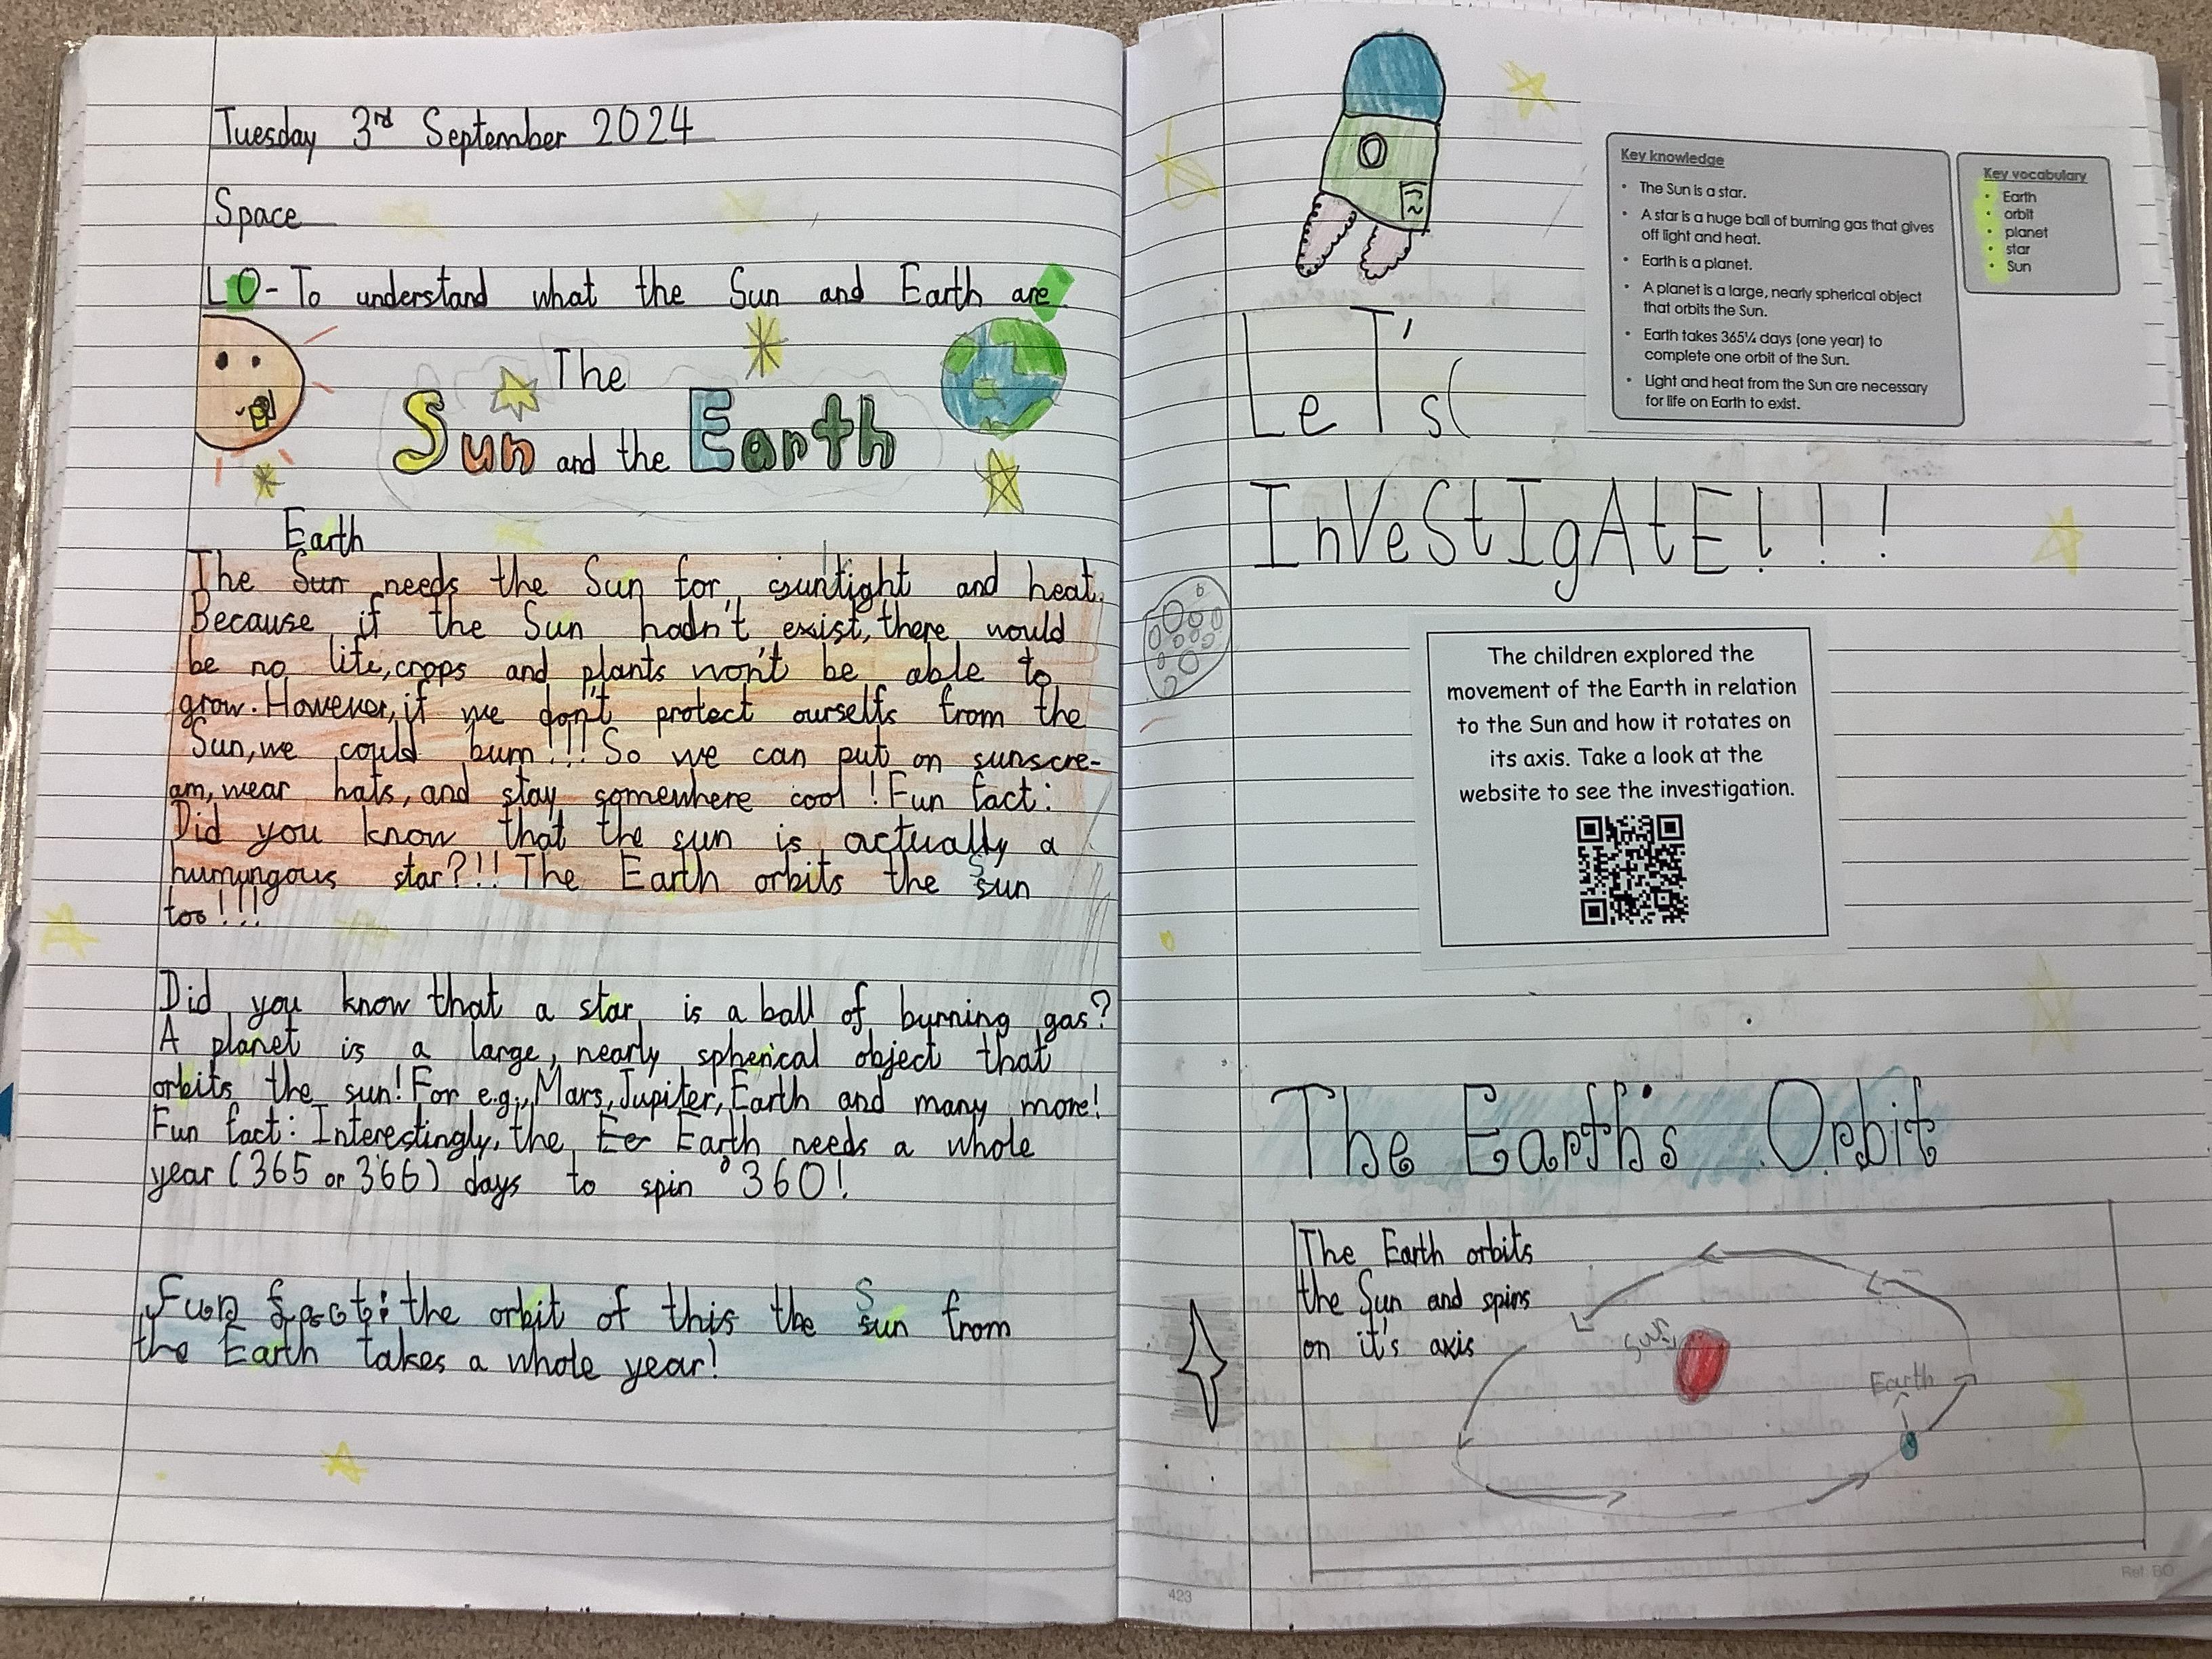 Tuesday 3rd September 2024
Space
LO - To understand what the Sun and Earth are
The
Sun and the Earth
Earth
The Sun needs the Sun for sunlight and heat.
Because if the Sun hadn't exist, there would
be no life, crops and plants won't be able to
grow. However, if we don't protect ourselfs from the
Sun, we could burn!!! So we can put on suncre-
am, wear hats, and stay somewhere cool! Fun fact:
Did you know that the sun is actually a
humungous star?!! The Earth orbits the Sun
too!!!
Did you know that a star is a ball of burning gas?
A planet is a large, nearly spherical object that
orbits the sun! For e.g., Mars, Jupiter, Earth and many more!
Fun fact: Interestingly, the Ee Earth needs a whole
year (365 or 366) days to spin °360!
Fun fact: the orbit of this the Sun from
the Earth takes a whole year!
Key knowledge
• The Sun is a star.
• A star is a huge ball of burning gas that gives
off light and heat.
• Earth is a planet.
• A planet is a large, nearly spherical object
that orbits the Sun.
• Earth takes 365¼ days (one year) to
complete one orbit of the Sun.
• Light and heat from the Sun are necessary
for life on Earth to exist.
Key vocabulary
• Earth
• orbit
• planet
• star
• Sun
LeT's
InVeStIgAtE!!!
The children explored the
movement of the Earth in relation
to the Sun and how it rotates on
its axis. Take a look at the
website to see the investigation.
The Earth's Orbit
The Earth orbits
the Sun and spins
on it's axis
Sun
Earth
423
Ref: BO